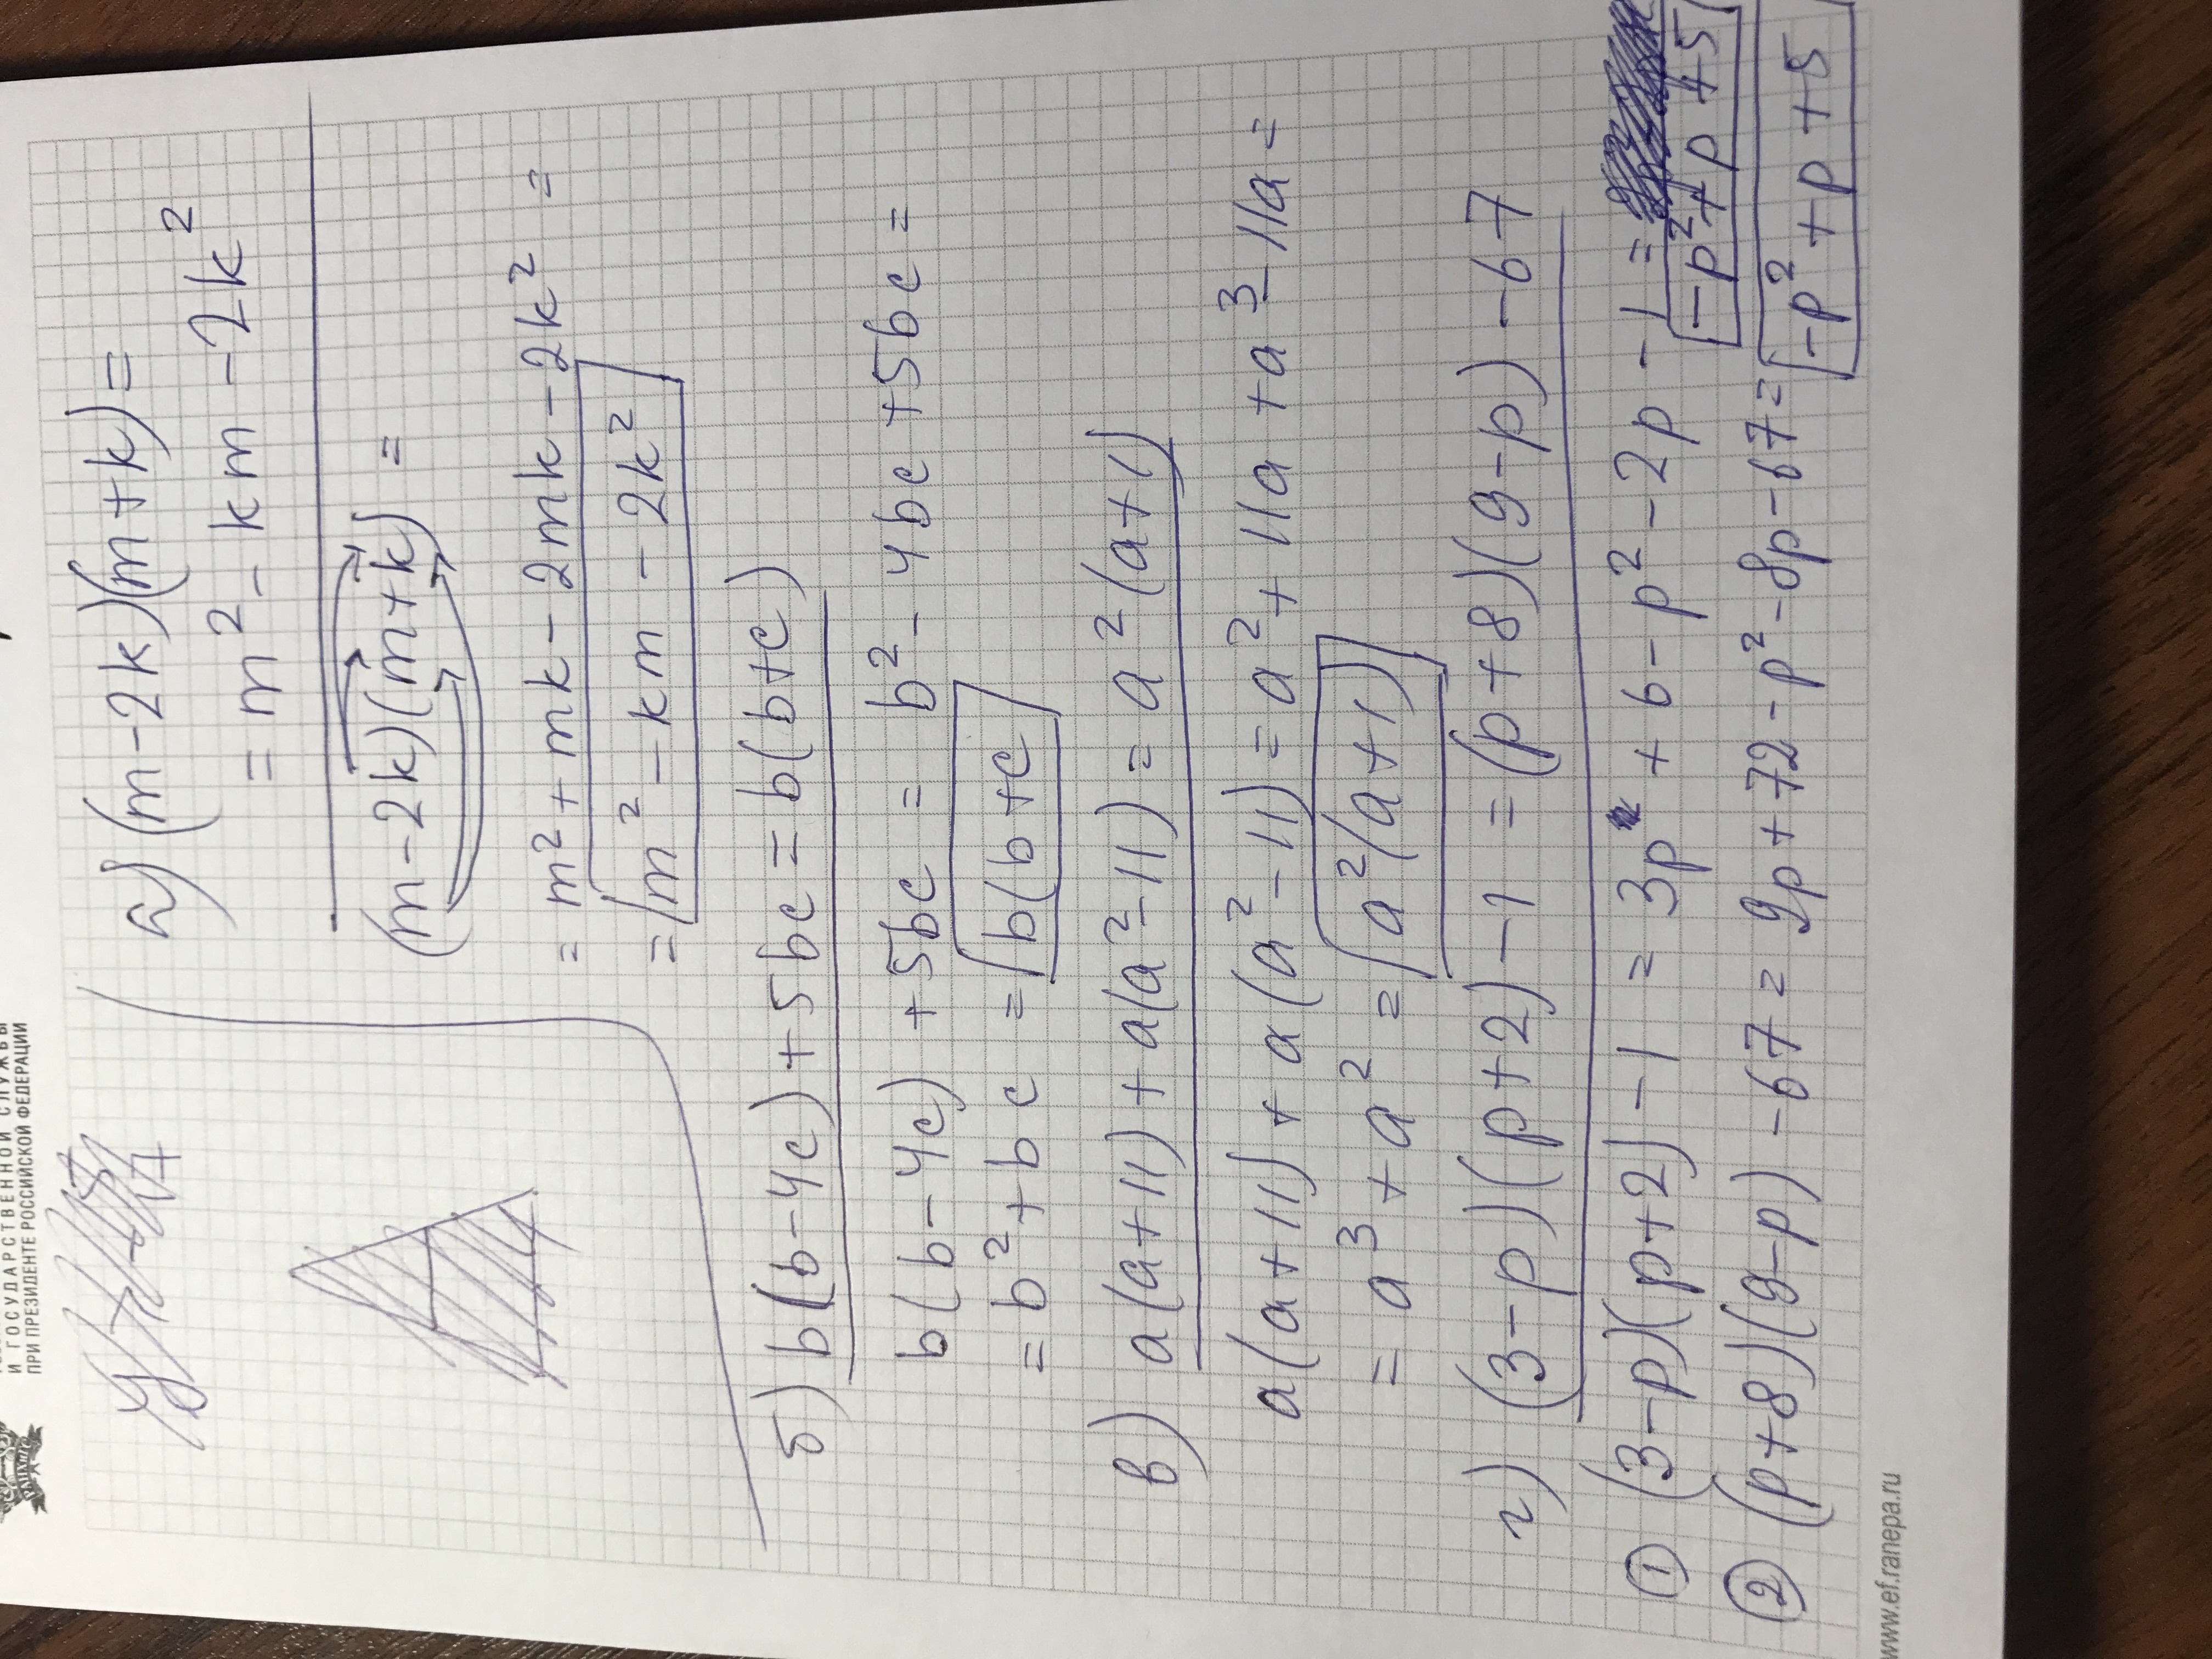 И ГОСУДАРСТВЕННОЙ СЛУЖБЫ
ПРИ ПРЕЗИДЕНТЕ РОССИЙСКОЙ ФЕДЕРАЦИИ
а) (m-2k)(m+k)=
= m² - km - 2k²
(m-2k)(m+k) =
= m² + mk - 2mk - 2k² =
= m² - km - 2k²
б) b(b-4c) + 5bc = b(b+c)
b(b-4c) + 5bc = b² - 4bc + 5bc =
= b² + bc = b(b+c)
в) a(a+11) + a(a²-11) = a²(a+1)
a(a+11) + a(a²-11) = a² + 11a + a³ - 11a =
= a³ + a² = a²(a+1)
г) (3-p)(p+2) - 1 = (p+8)(9-p) - 67
① (3-p)(p+2) - 1 = 3p + 6 - p² - 2p - 1 =
-p² + p + 5
② (p+8)(9-p) - 67 = 9p + 72 - p² - 8p - 67 = -p² + p + 5
www.ef.ranepa.ru